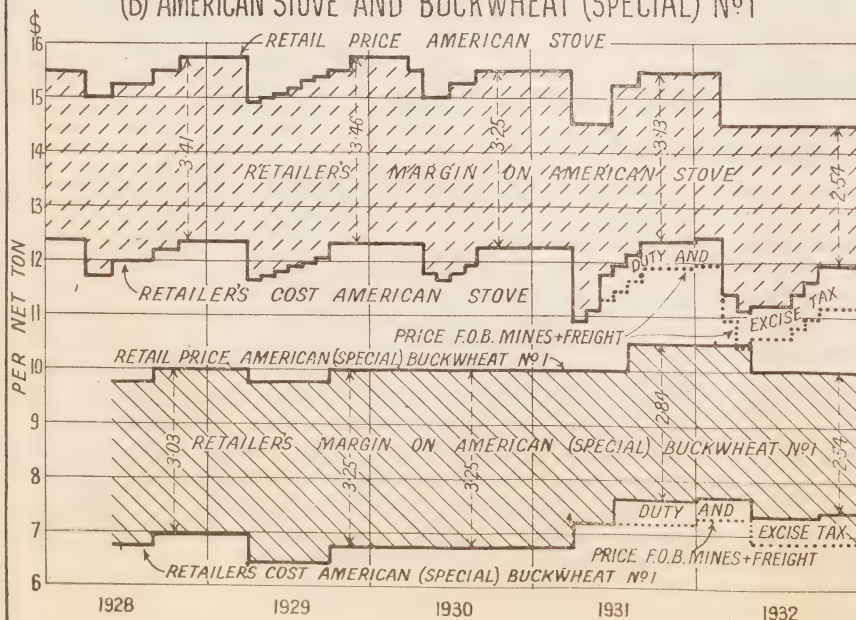 (B) AMERICAN STOVE AND BUCKWHEAT (SPECIAL) Nº1
$
16
15
14
13
12
11
10
9
8
7
6
PER NET TON
RETAIL PRICE AMERICAN STOVE
3.41
3.46
3.25
3.13
2.54
RETAILER'S MARGIN ON AMERICAN STOVE
RETAILER'S COST AMERICAN STOVE
DUTY AND
EXCISE TAX
PRICE F.O.B. MINES+FREIGHT
RETAIL PRICE AMERICAN (SPECIAL) BUCKWHEAT Nº1
3.03
3.25
3.25
2.84
2.54
RETAILER'S MARGIN ON AMERICAN (SPECIAL) BUCKWHEAT Nº1
DUTY AND
EXCISE TAX
PRICE F.O.B. MINES+FREIGHT
RETAILERS COST AMERICAN (SPECIAL) BUCKWHEAT Nº1
1928 1929 1930 1931 1932